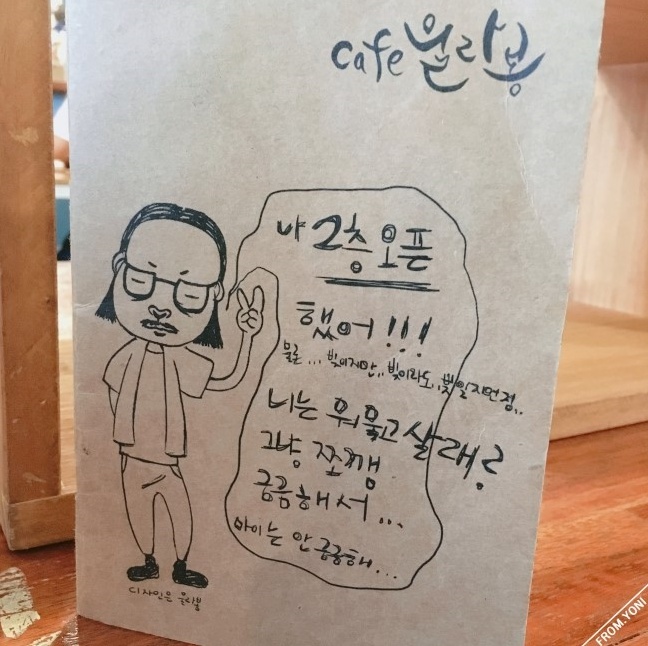 cafe 월라봉
나 2층 오픈
했어!!!
물론... 빚이지만,, 빚이라도, 빚일지언정..
너는 뭐 물고 살래?
그냥 쪼깸
금금해서...
마이는 안 금금해...
디자인은 월라봉
FROM.YONI